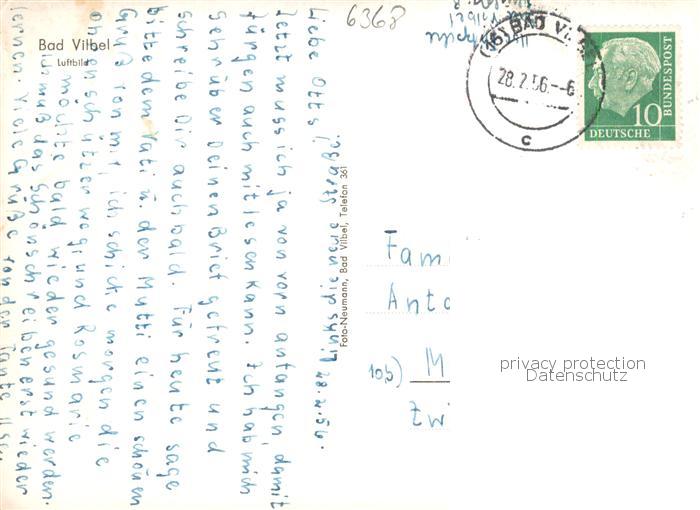 6368
Bad Vilbel
Luftbild
(16) BAD VILBEL
28.2.56.--6
c
10
DEUTSCHE
BUNDESPOST
Liebe Otts!
Jetzt muss ich ja von vorn anfangen, damit
Jürgen auch mitlesen kann. Ich hab mich
sehr über Deinen Brief gefreut und
schreibe Dir auch bald. Für heute sage
bitte dem Vati u. der Mutti einen schönen
Gruß von mir, ich schicke morgen die
Ohrenschützer weg und Rosmarie
möchte bald wieder gesund werden.
muß das Schönschreiben erst wieder
lernen. Viele Grüße von der Tante
Links die neue Straße!
Foto-Neumann, Bad Vilbel, Telefon 361
Fam
Anto
10b) M
Zwi
privacy protection
Datenschutz